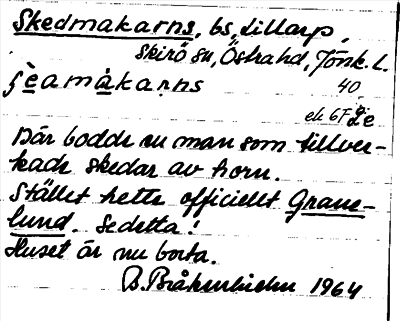 Skedmakarns, bs, Lillarp,
Skirö sn, Östra hd, Jönk. L.
40
ek 6F
Där bodde en man som tillver-
kade skedar av horn.
Stället hette officiellt Grane-
lund. Se detta!
Huset är nu borta.
1964